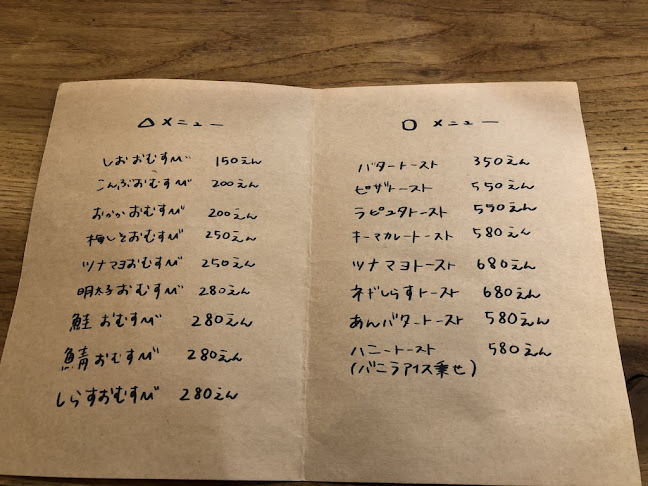 △メニュー
しおおむすび 150えん
こんぶおむすび 200えん
おかかおむすび 200えん
梅しそおむすび 250えん
ツナマヨおむすび 250えん
明太子おむすび 280えん
鮭おむすび 280えん
鯖おむすび 280えん
しらすおむすび 280えん
□ メニュー
バタートースト 350えん
ピザトースト 550えん
ラピュタトースト 550えん
キーマカレートースト 580えん
ツナマヨトースト 680えん
ネギしらすトースト 680えん
あんバタートースト 580えん
ハニートースト 580えん
(バニラアイス乗せ)